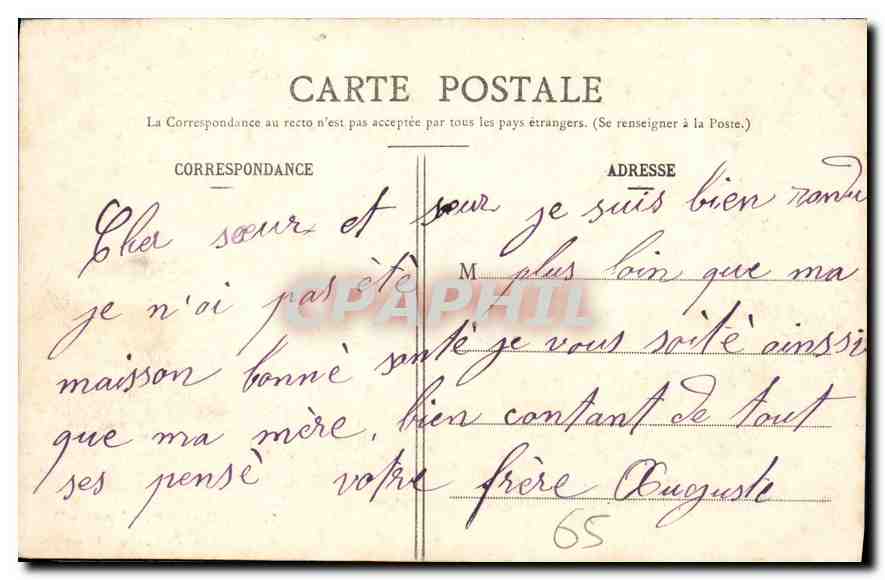 CARTE POSTALE
La Correspondance au recto n'est pas acceptée par tous les pays étrangers. (Se renseigner à la Poste.)
CORRESPONDANCE
ADRESSE
Cher sœur et sœur je suis bien randu
je n'ai pas été M plus loin que ma
CPAPHIL
maisson bonné santé je vous soité ainssi
que ma mère, bien contant de tout
ses pensè votre frère Auguste
65